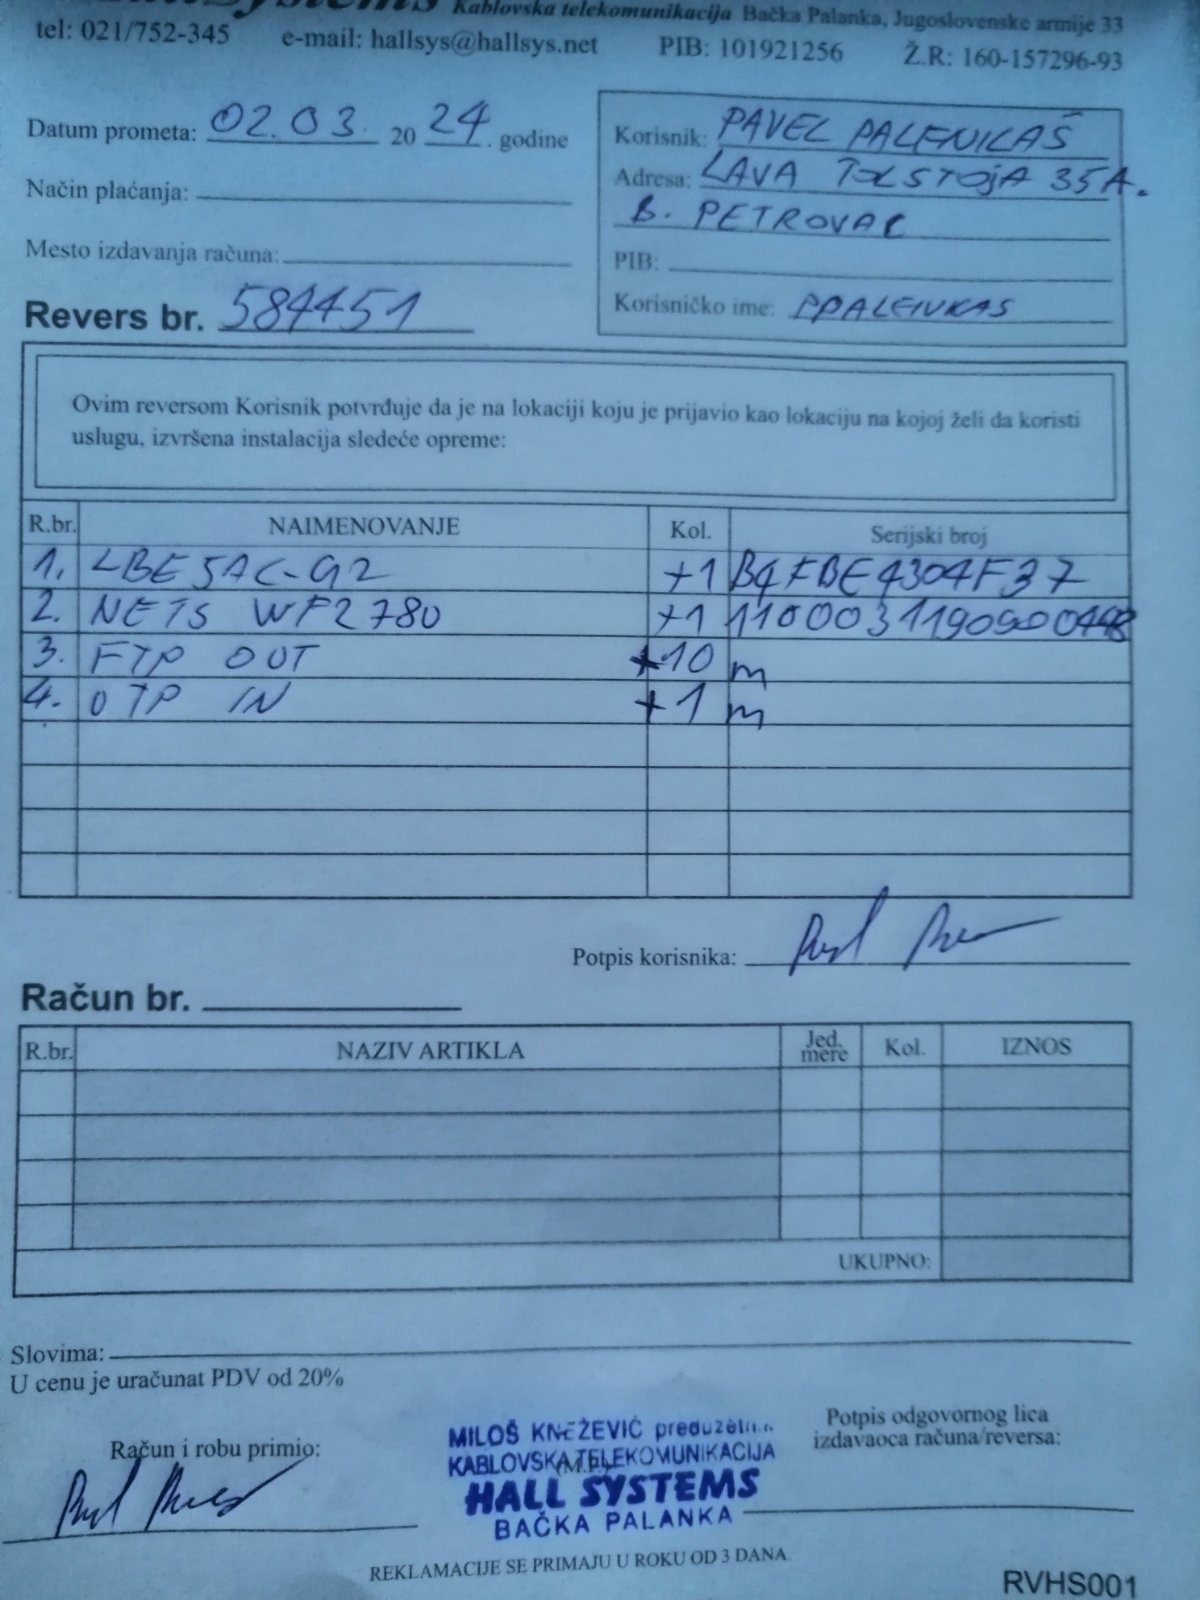 Systems Kablovska telekomunikacija Bačka Palanka, Jugoslovenske armije 33
tel: 021/752-345 e-mail: hallsys@hallsys.net PIB: 101921256 Ž.R: 160-157296-93
Datum prometa: 02.03. 2024. godine
Način plaćanja:
Mesto izdavanja računa:
Revers br. 584451
Korisnik: PAVEL PALENKAŠ
Adresa: LAVA TOLSTOJA 35A.
B. PETROVAC
PIB:
Korisničko ime: PPALENKAS
Ovim reversom Korisnik potvrđuje da je na lokaciji koju je prijavio kao lokaciju na kojoj želi da koristi
uslugu, izvršena instalacija sledeće opreme:
R.br. NAIMENOVANJE Kol. Serijski broj
1. LBE5AC-G2 +1 B4FBE4304F37
2. NETS WF2780 +1
3. FTP OUT +10 m
4. UTP IN +1 m
Potpis korisnika:
Račun br.
R.br. NAZIV ARTIKLA Jed. mere Kol. IZNOS
UKUPNO:
Slovima:
U cenu je uračunat PDV od 20%
Račun i robu primio:
MILOŠ KNEŽEVIĆ
KABLOVSKA TELEKOMUNIKACIJA
(M.P.)
HALL SYSTEMS
BAČKA PALANKA
Potpis odgovornog lica
izdavaoca računa/reversa:
REKLAMACIJE SE PRIMAJU U ROKU OD 3 DANA.
RVHS001